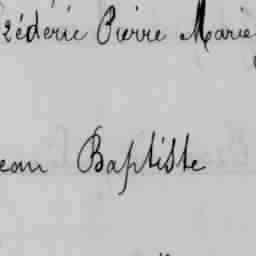 rédéric Pierre Marie
ean Baptiste